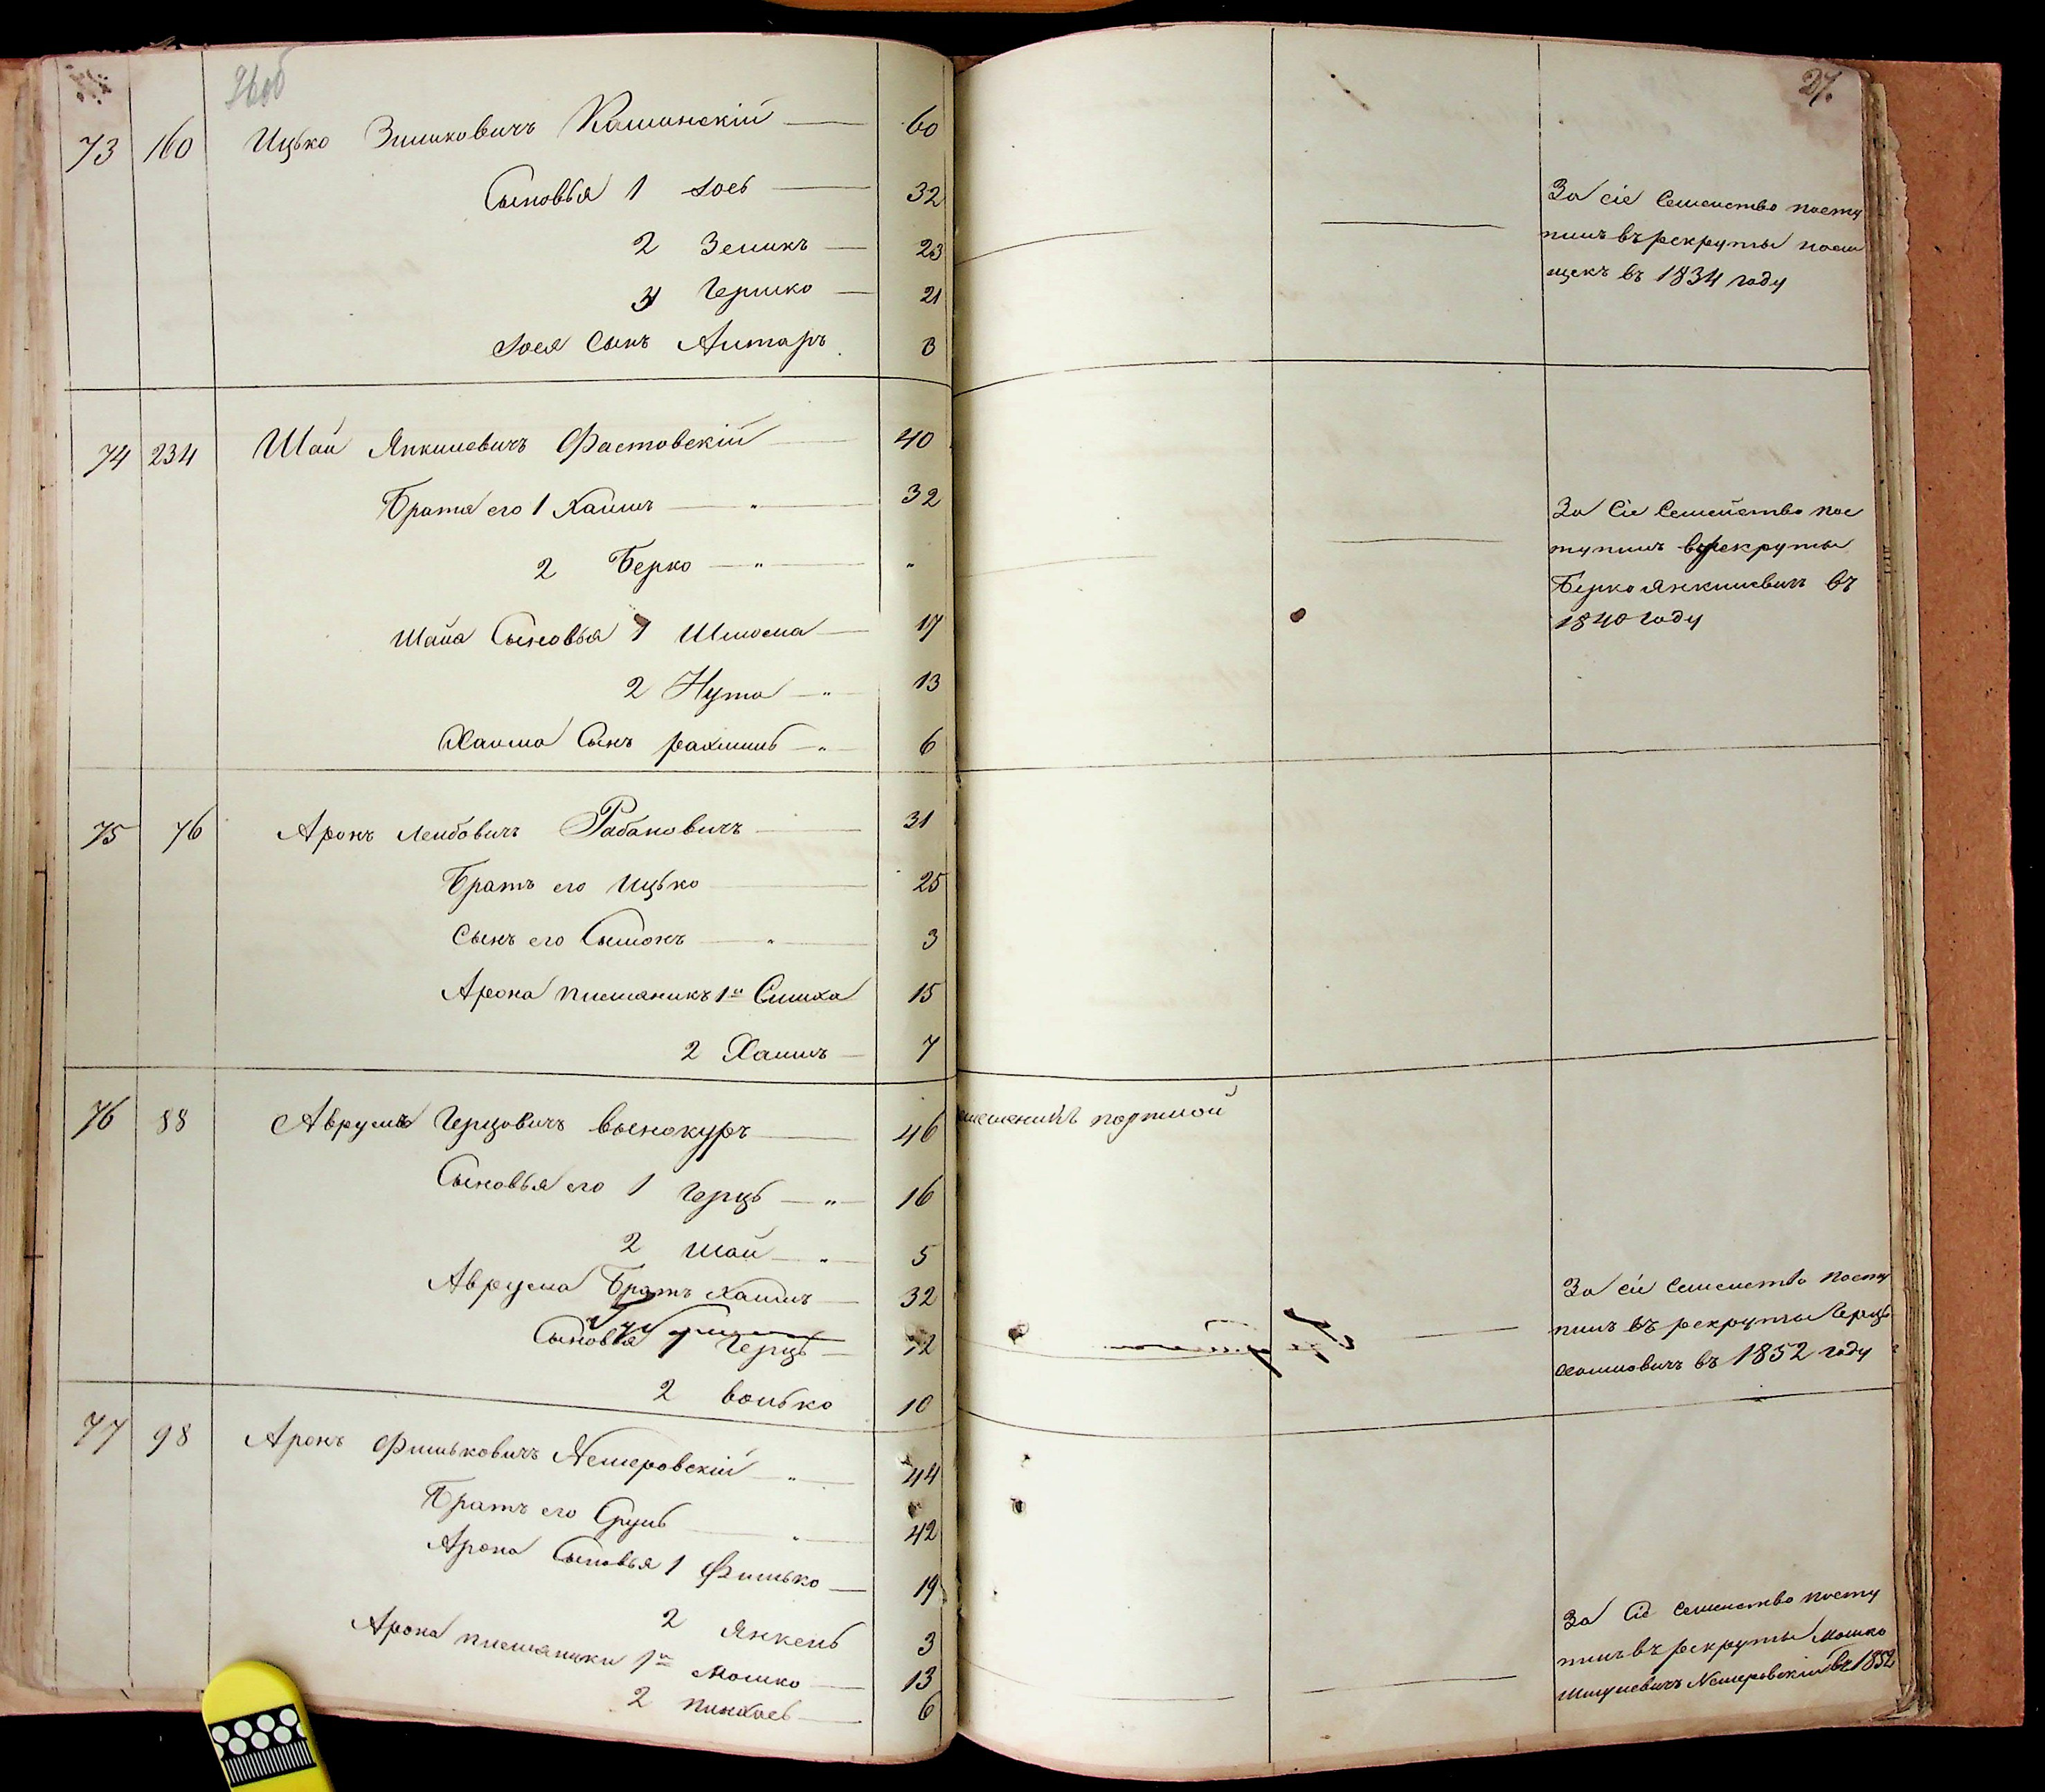 26об
27.
73 160 Ицько Зимиковичъ Каминскій 60
Сыновья 1 Іось 32
2 Земикъ 23
3 Гершко 21
Іося Сынъ Аптаръ 3
За сіе Семейство посту
пилъ въ рекруты
въ 1834 году
74 234 Шая Янкилевичъ Фастовскій 40
Братья его 1 Хаимъ 32
2 Берко "
Шаия Сыновья 1 Шлиома 17
2 Нута 13
Хаима Сынъ рахмиль 6
За сіе Семейство пос
тупилъ в рекруты
Берко Янкилевичъ въ
1840 году
75 76 Аронъ Лейбовичъ Рабановичъ 31
Братъ его Ицько 25
Сынъ его Сымонъ 3
Арона племяникъ 1й Симха 15
2 Хаимъ 7
76 88 Аврумъ Герцовичъ Вынокуръ 46
портной
Сыновья его 1 Герць 16
2 Шая 5
Аврума Братъ Хаимъ 32
Сыновья 1 Герць 12
2 Волько 10
За сіе Семейство посту
пилъ въ рекруты Герць
Хаимовичъ въ 1852 году
77 98 Аронъ Фишьковичъ Немеровскій 44
Братъ его Сруль 42
Арона Сыновья 1 Фишько 19
2 Янкель 3
Арона племяники 1й Мошко 13
2 Пинхась 6
За сіе Семейство посту
пилъ въ рекруты Мошко
Шмулевичъ Немеровскій въ 1852